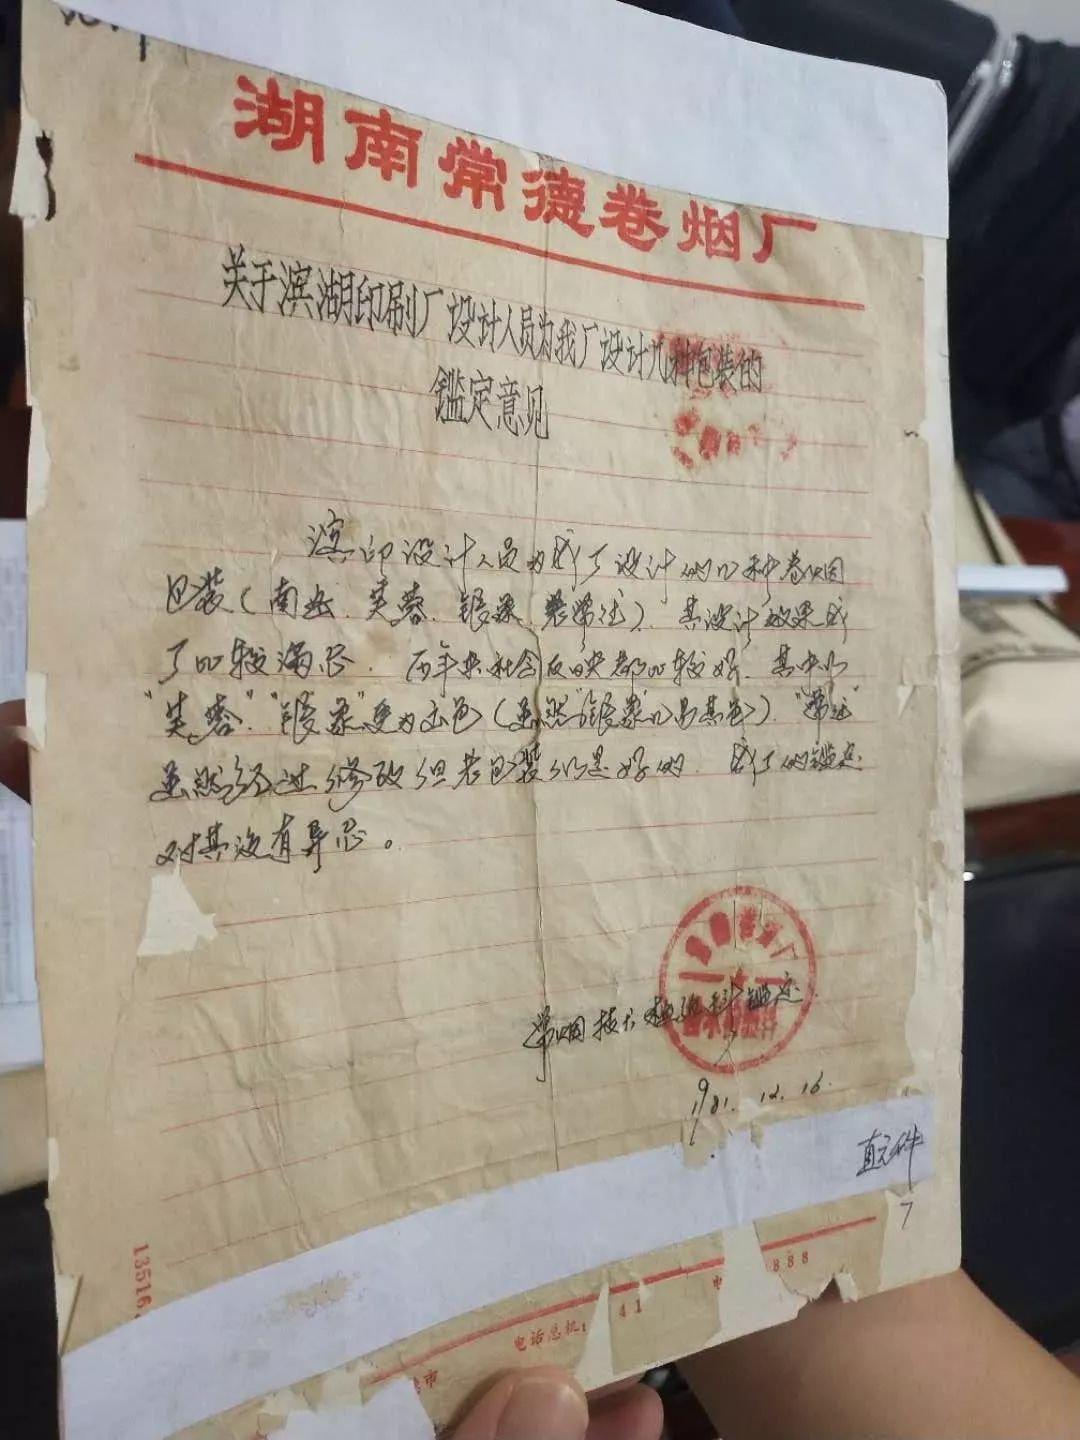 湖南常德卷烟厂
关于滨湖印刷厂设计人员为我厂设计几种包装的
鉴定意见
滨印设计人员为我厂设计的几种卷烟
包装（南岳、芙蓉、银象、常德）。其设计效果我
厂比较满意。历年来社会反映都比较好。其中以
“芙蓉”“银象”更为出色（虽然“银象”
虽然经过修改但老包装仍是好的。我厂的鉴定
对其没有异议。
常烟技术检验科鉴定
1981.12.16
7
13516
电话总机： 41
888